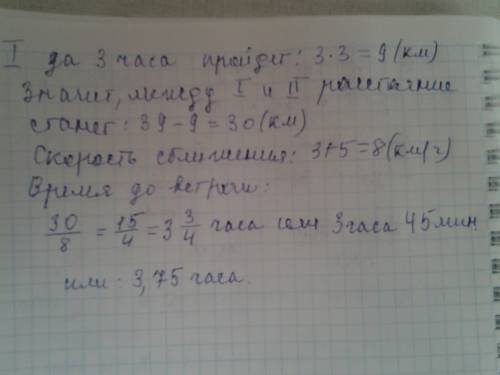 I за 3 часа пройдет: 3·3=9(км)
Значит, между I и II расстояние
станет: 39-9=30(км)
Скорость сближения: 3+5=8(км/ч)
Время до встречи:
30/8 = 15/4 = 3 3/4 часа или 3 часа 45 мин
или: 3,75 часа.